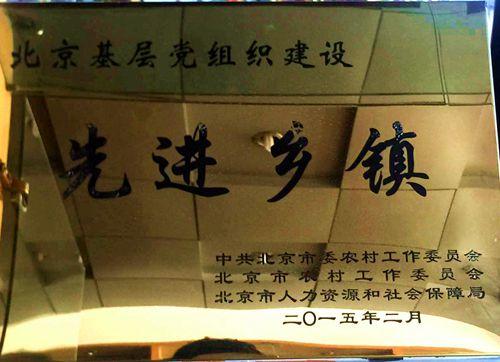 北京基层党组织建设
先进乡镇
中共北京市委农村工作委员会
北京市农村工作委员会
北京市人力资源和社会保障局
二〇一五年二月